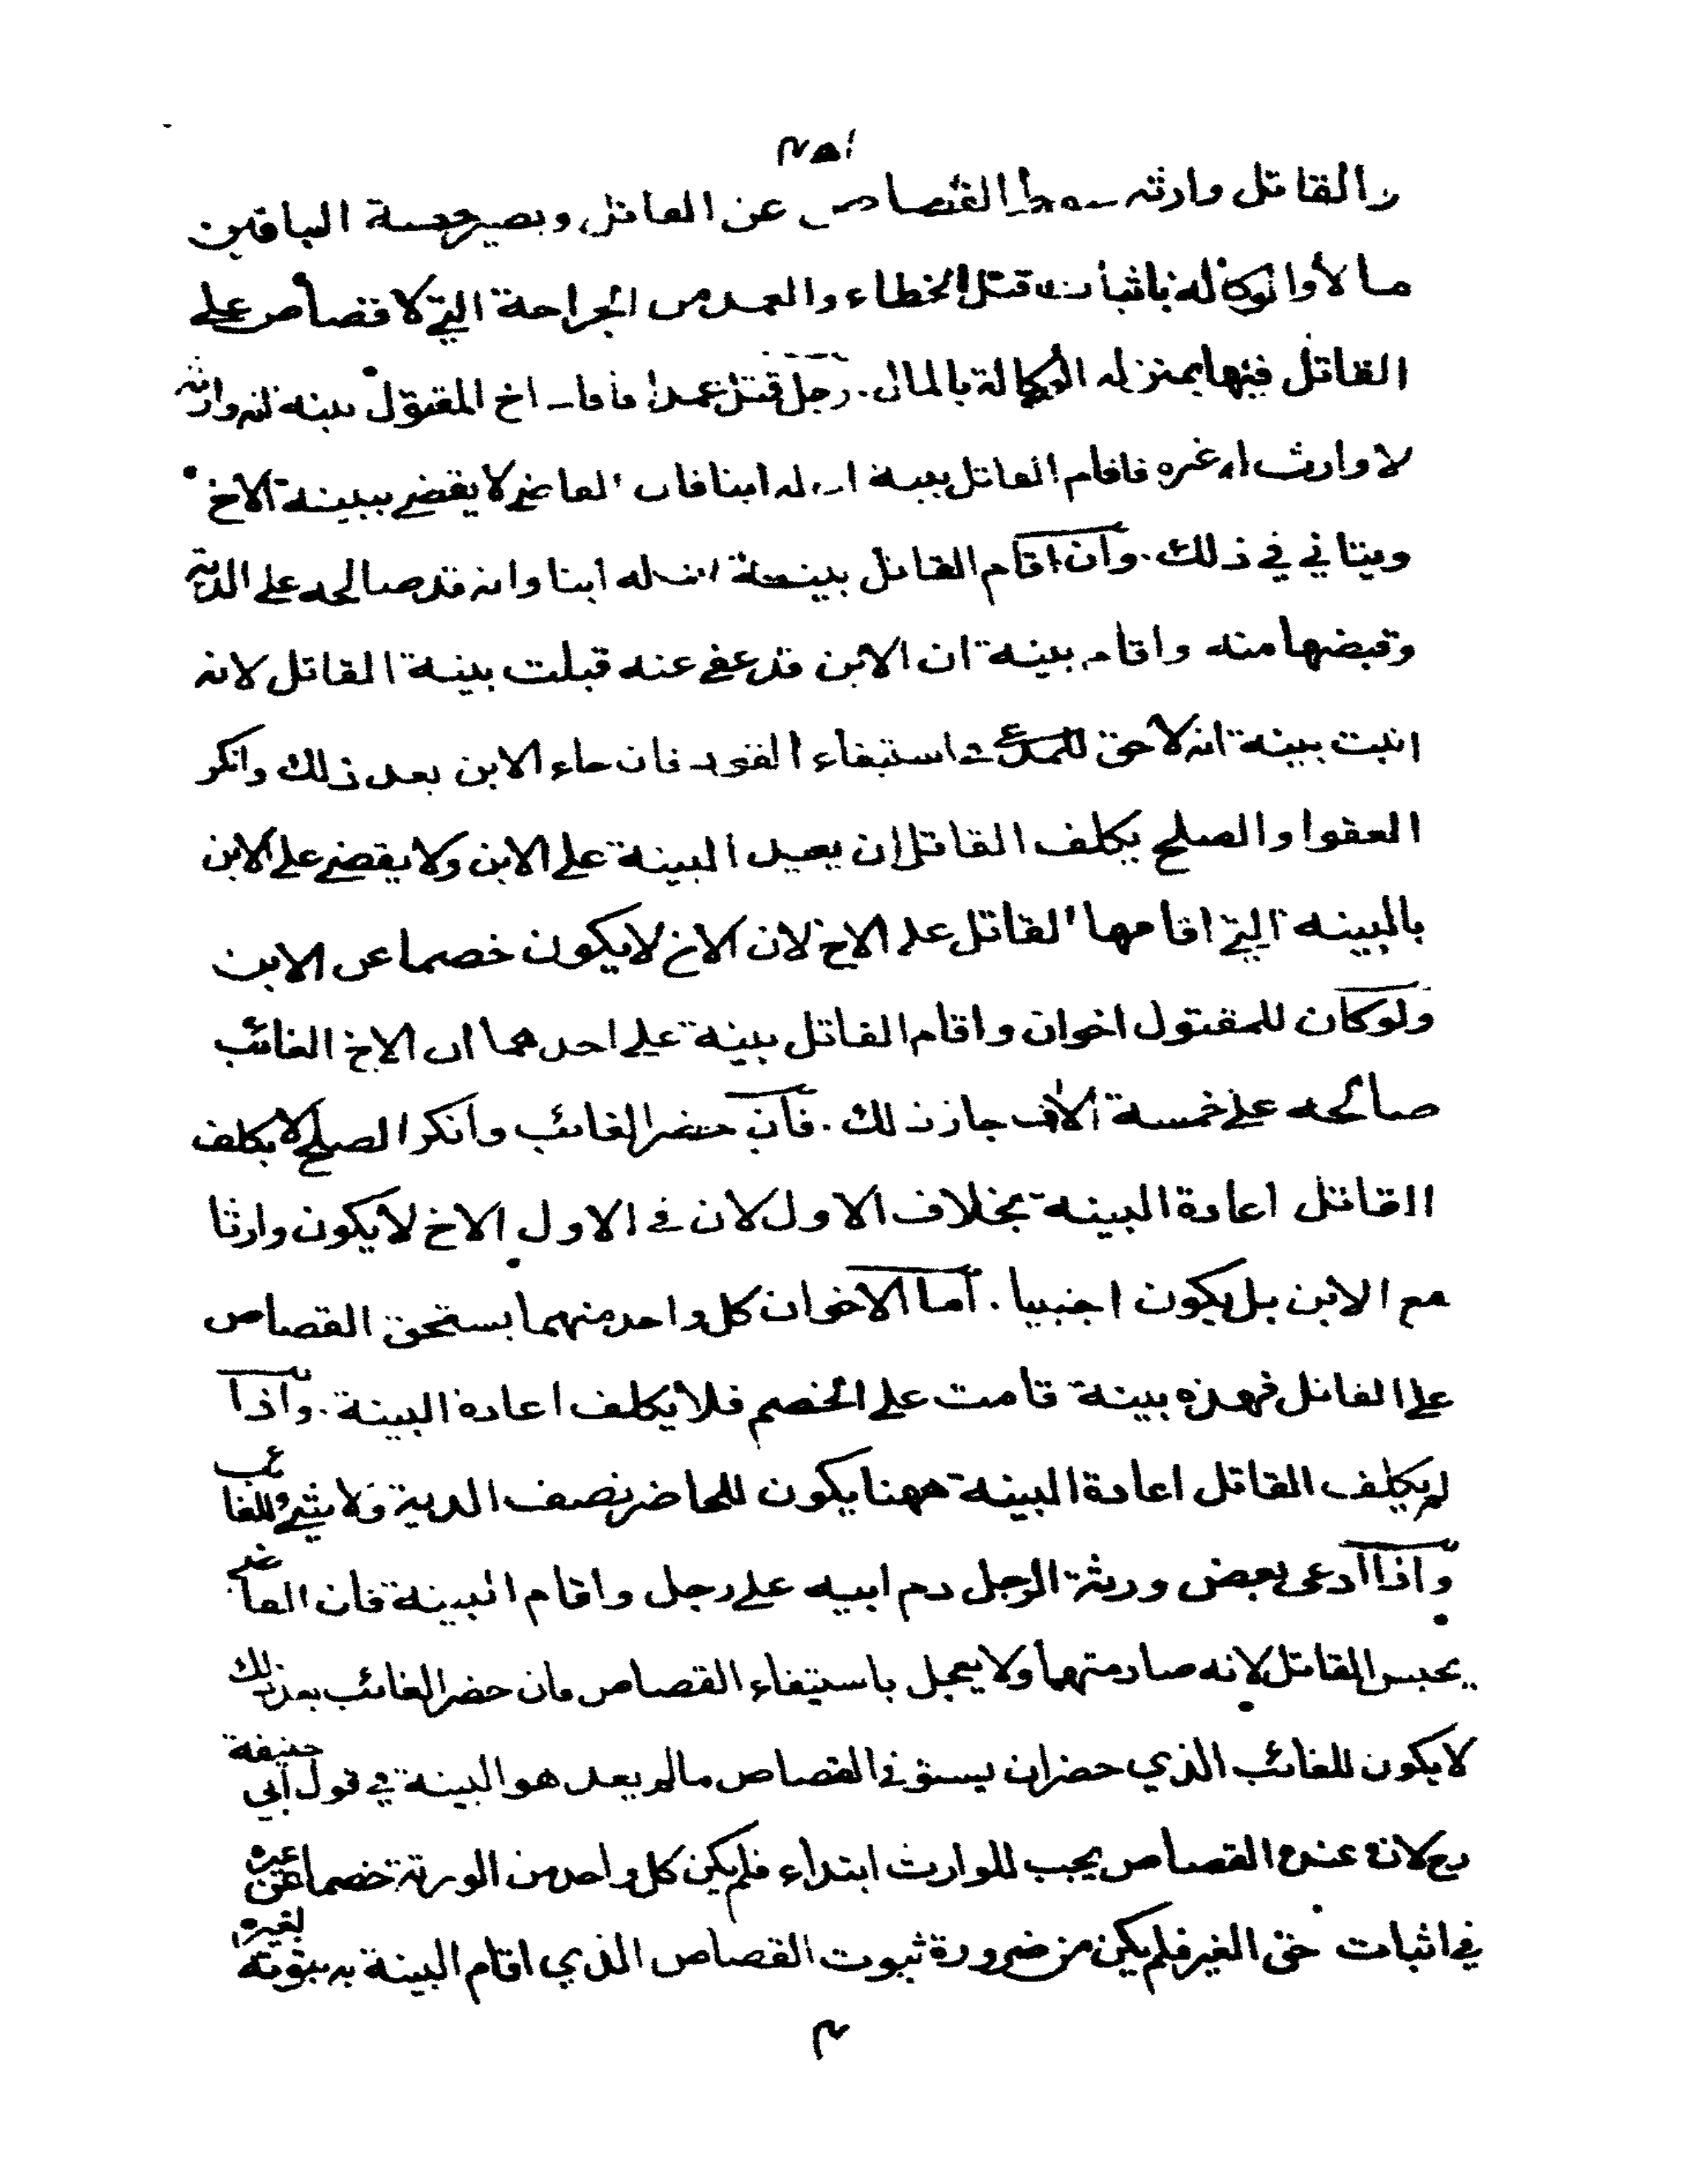 القاتل وارثه سقط القصاص عن القاتل ويصير حصة الباقين
مالا والوكالة باثبات قتل الخطاء والعمد من الجراحة التي لا قصاص على
القاتل فيها بمنزله الوكالة بالمال. رجل قتل عمدا فاقام اخ المقتول بينه انه وارثه
لا وارث له غيره فاقام القاتل بينة ان له ابنا فان القاضي لا يقضي ببينة الاخ
ويتاني في ذلك. وان اقام القاتل بينة ان له ابنا وانه قد صالحه على الدية
وقبضها منه واقام بينة ان الابن قد عفى عنه قبلت بينة القاتل لانه
اثبت ببينة انه لا حق للمدعي في استيفاء القود فان جاء الابن بعد ذلك وانكر
العفوا والصلح يكلف القاتل ان يعيد البينة على الابن ولا يقضي على الابن
بالبينه التي اقامها القاتل على الاخ لان الاخ لا يكون خصما عن الابن
ولو كان للمقتول اخوان واقام القاتل بينة على احدهما ان الاخ الغائب
صالحه على خمسة الاف جاز ذلك. فان حضر الغائب وانكر الصلح لا يكلف
القاتل اعادة البينة بخلاف الاول لان في الاول الاخ لا يكون وارثا
مع الابن بل يكون اجنبيا. اما الاخوان كل واحد منهما يستحق القصاص
على القاتل فهذه بينة قامت على الخصم فلا يكلف اعادة البينة. واذا
لم يكلف القاتل اعادة البينة ههنا يكون للحاضر نصف الدية ولا شيء للغائب
واذا ادعى بعض ورثة الرجل دم ابيه على رجل واقام البينة فان القاضي
يحبس القاتل لانه صار متهما ولا يعجل باستيفاء القصاص فان حضر الغائب بعد ذلك
لا يكون للغائب الذي حضر ان يستوفي القصاص ما لم يعد هو البينة في قول ابي حنيفة
رح لان عنده القصاص يجب للوارث ابتداء فلم يكن كل واحد من الورثة خصما عن غيره
في اثبات حق الغير فلم يكن من ضرورة ثبوت القصاص الذي اقام البينة به ثبوته لغيره